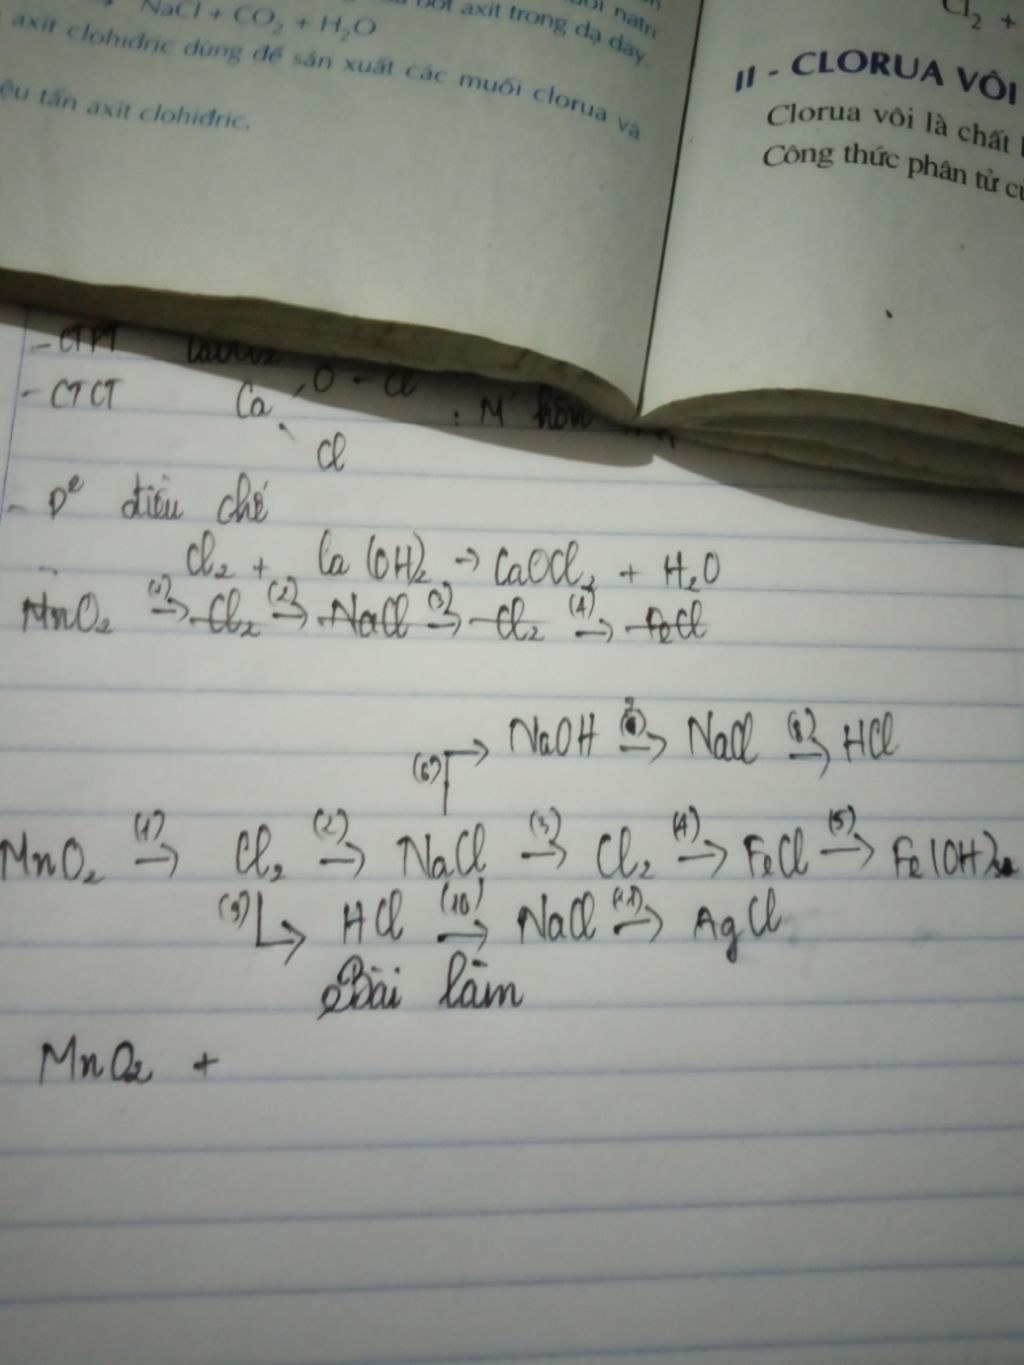 NaCl + CO₂ + H₂O
bột axit trong dạ dày.
axit clohiđric dùng để sản xuất các muối clorua và
tấn axit clohiđric.
Cl₂ +
II - CLORUA VÔI
Clorua vôi là chất
Công thức phân tử
- CTPT
- CTCT Ca O - Cl : M' hỗn
Cl
- Pᵉ điều chế
Cl₂ + Ca(OH)₂ → CaOCl₂ + H₂O
MnO₂ (1)→ Cl₂ (2)→ NaCl (3)→ Cl₂ (4)→ FeCl
(6) → NaOH → NaCl (8)→ HCl
MnO₂ (1)→ Cl₂ (2)→ NaCl (3)→ Cl₂ (4)→ FeCl (5)→ Fe(OH)
(9) → HCl (10)→ NaCl (11)→ AgCl
Bài làm
MnO₂ +